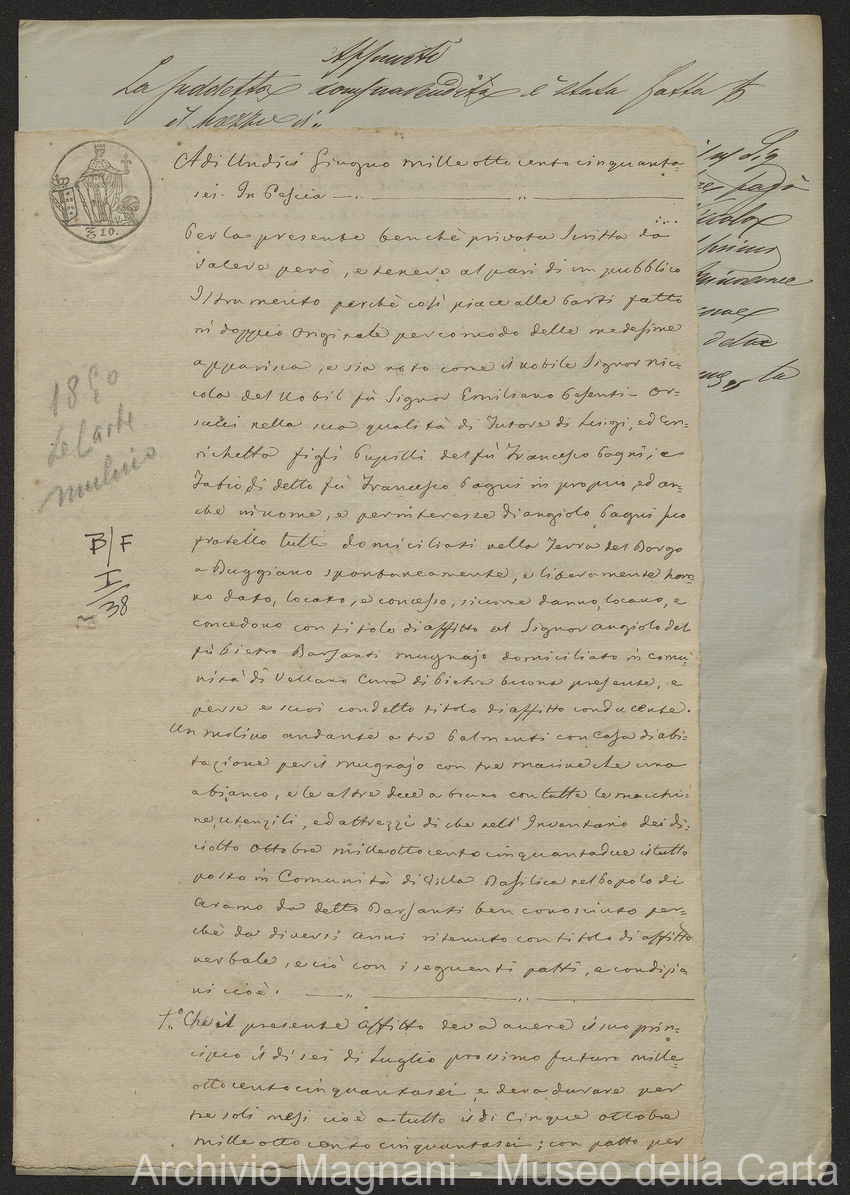 Appunti
La suddetta compravendita è stata fatta
il
Adi Undici Giugno mille otto cento cinquanta=
sei. In Pescia
Per la presente benchè privata Scritta da
valere però, e tenere al pari di un pubblico
Istrumento perchè così piace alle Parti fatto
in doppio Originale per comodo delle medesime
apparisca, e sia noto come il nobile Signor Nic=
cola del Nobil fù Signor Emiliano Pesenti Or=
succi nella sua qualità di Tutore di Luigi, ed En=
richetta figli Pupilli del fù Francesco Pagni; e
Fabio di detto fù Francesco Pagni in proprio, ed an=
che in nome, e per interesse di Angiolo Pagni suo
fratello tutti domiciliati nella Terra del Borgo
a Buggiano spontaneamente, e liberamente han=
no dato, locato, e concesso, siccome danno, locano, e
concedono con titolo di affitto al Signor Angiolo del
fù Pietro Barsanti mugnajo domiciliato in comu=
nità di Vellano Cura di Pietra buona presente, e
per se e suoi con detto titolo di affitto conducente.
Un molino andante a tre Palmenti con Casa di abi=
tazione per il mugnajo con tre macine che una
a bianco, e le altre due a bruno con tutte le macchi=
ne, utenzili, ed attrezzi di che nell' Inventario dei di=
ciotto Ottobre mille otto cento cinquantadue il tutto
posto in Comunità di Villa Basilica nel Popolo di
Aramo da detto Barsanti ben conosciuto per=
chè da diversi anni ritenuto con titolo di affitto
verbale, e ciò con i seguenti patti, e condizio=
ni cioè.
1.° Che il presente Affitto deva avere il suo prin=
cipio il dì sei di Luglio prossimo futuro mille
otto cento cinquantasei, e deva durare per
tre soli mesi cioè a tutto il dì Cinque Ottobre
mille otto cento cinquantasei; con patto per
10.
1850
Le Carte
mulino
B/F
I
38
Archivio Magnani - Museo della Carta